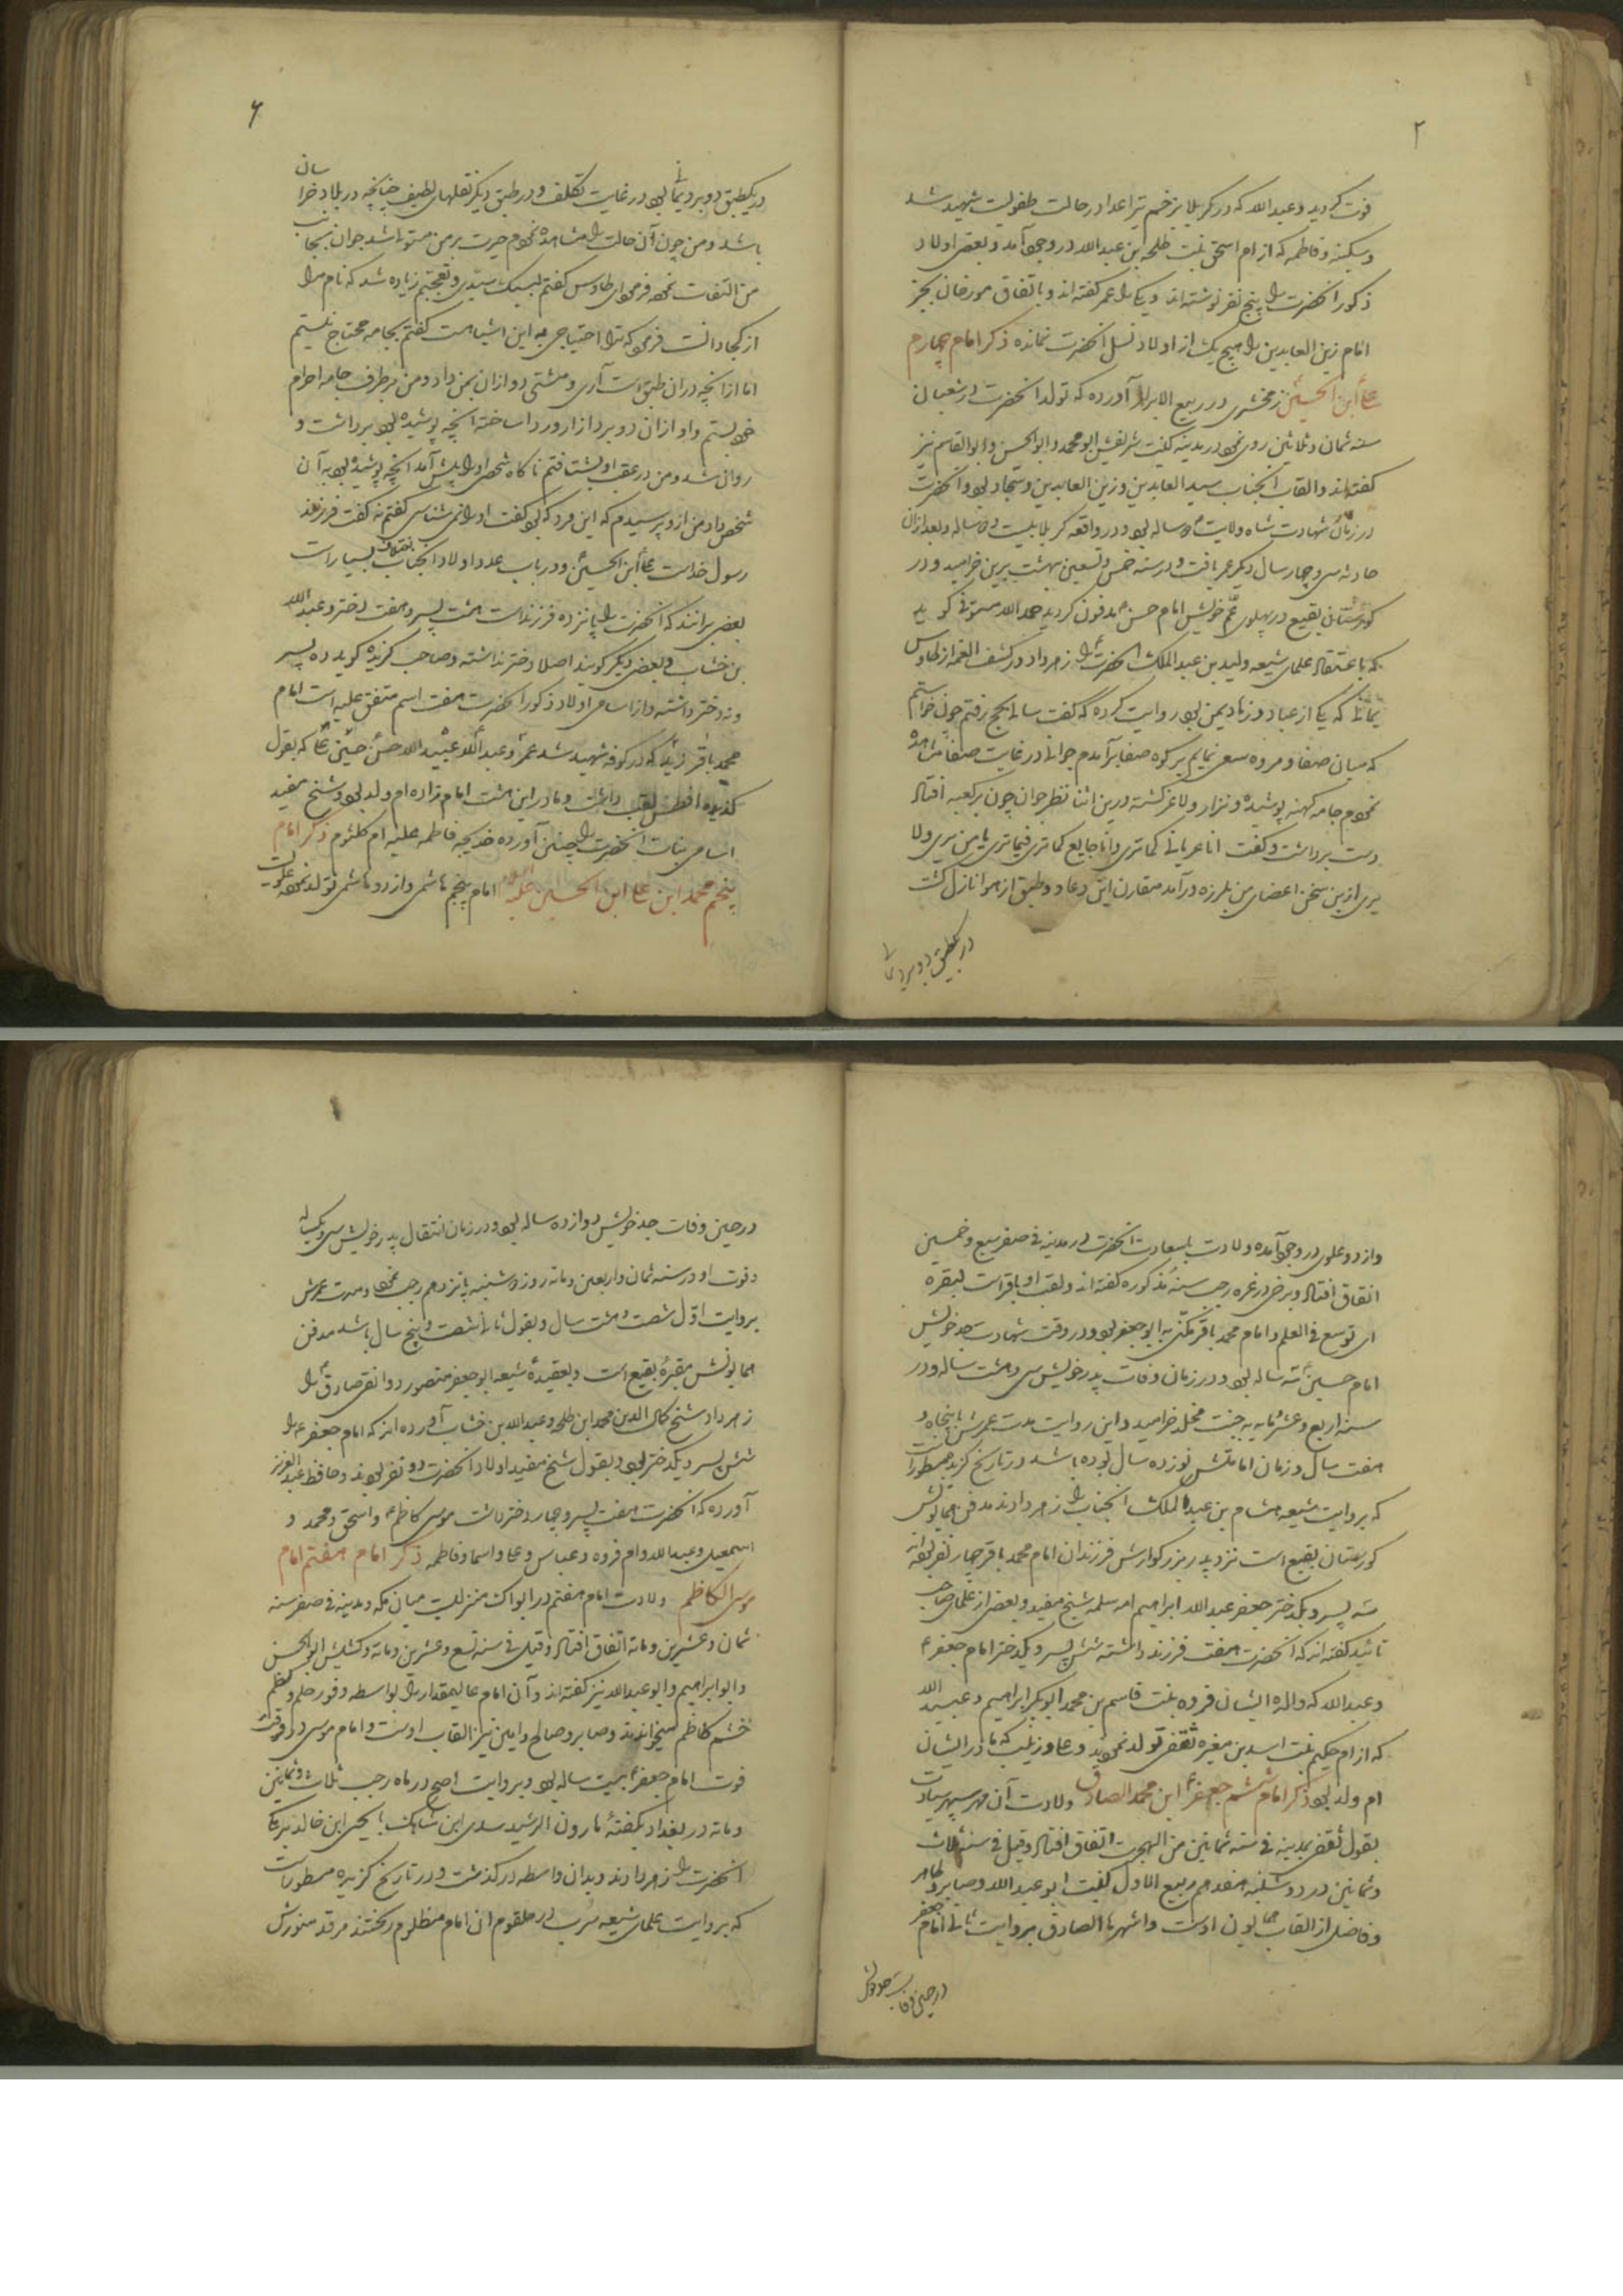 ۲
فوت کردید و عبدالله که در کربلا بزخم تیر اعدا در حالت طفولیت شهید شد
و سکینه و فاطمه که از ام اسحق بنت طلحه بن عبدالله در وجود آمد و بعضی اولاد
ذکور آنحضرت را پنج نفر نوشته اند و یکی را عمر گفته اند و باتفاق مورخان بجز
امام زین العابدین را هیچ یک از اولاد نسل آنحضرت نمانده ذکر امام چهارم
علی ابن الحسین زمخشری در ربیع الابرار آورده که تولد آنحضرت در شعبان
سنه ثمان و ثلاثین روی نمود در مدینه کنیت شریفش ابو محمد و ابوالحسن و ابوالقاسم نیز
گفته اند و القاب آنجناب سید العابدین و زین العابدین و سجاد بود و آنحضرت
در زمان شهادت شاه ولایت ساله بود و در واقعه کربلا بیست ساله و بعد ازان
حادثه سی و چهار سال دیگر عمر یافت و در سنه خمس و تسعین ببهشت برین خرامید و در
کورستان بقیع در پهلوی عم خویش امام حسن مدفون کردید حمد الله مستوفی کوید
که باعتقاد علمای شیعه ولید بن عبد الملک آنحضرت را زهر داد در کشف الغمه از طاوس
یمانی که یکی از عباد و زهاد یمن بود روایت کرده که گفت سالی بحج رفتم چون خواستم
که میان صفا و مروه سعی نمایم بر کوه صفا برآمدم جوانی در غایت صفا مشاهده
نمودم جامه کهنه پوشیده و نزار و لاغر گشته درین اثنا نظر جوان چون بر کعبه افتاد
دست برداشت و گفت انا عریانی کما تری و انا جایع کما تری فیما تری یا من یری ولا
یری ازین سخن اعضای من بلرزه درآمد مقارن این دعا دو طبق از هوا نازل گشت
در یکطبق دو برد
۶
در یکطبق دو برد یمانی بود در غایت تکلف و در طبق دیگر نقلهای لطیف چنانچه در بلاد خراسان
باشد و من چون آن حالت را مشاهده نمودم حیرت بر من مستولی شد جوان بجانب
من التفات نمود فرمود ای طاوس گفتم لبیک سیدی و تعجبم زیاده شد که نام مرا
از کجا دانست فرمود که ترا احتیاجی به این اشیا هست گفتم بجامه محتاج نیستم
اما از آنچه دران طبق است آری و مشتی دو ازان بمن داد و من بر طرف جامه احرام
خود بستم و او ازان دو برد ازار و ردا ساخته آنچه پوشیده بود برداشت و
روان شد و من در عقب او بشتافتم ناگاه شخصی او را پیش آمد آنچه پوشیده بود به آن
شخص داد من ازو پرسیدم که این فرد که بود گفت او را نمی شناسی گفتم نه گفت فرزند
رسول خداست علی ابن الحسین و در باب عدد اولاد آنجناب بسیار است
بعضی برانند که آنحضرت را پانزده فرزند است هشت پسر و هفت دختر و عبدالله
بن خشاب و بعضی دیگر گویند اصلا دختر نداشته و صاحب گزیده کوید ده پسر
و نه دختر داشته و از اسامی اولاد ذکور آنحضرت هفت اسم متفق علیه است امام
محمد باقر زید که در کوفه شهید شد عمر و عبدالله عبیدالله حسن حسین علی که بقول
گزیده افطس لقب داشت و مادر این هشت امام زاده ام ولد بود و شیخ مفید
اسامی بنات آنحضرت را چنین آورده خدیجه فاطمه علیه ام کلثوم ذکر امام
پنجم محمد ابن علی ابن الحسین علیه السلام امام پنجم هاشمی و از دو هاشمی تولد نموده علویست
و از دو علوی در وجود آمده ولادت با سعادت آنحضرت در مدینه فی صفر سبع و خمسین
اتفاق افتاد و برخی در غره رجب سنه مذکوره گفته اند و لقب او باقر است لبقره
ای توسع فی العلم و امام محمد باقر مکنی به ابو جعفر بود و در وقت شهادت جد خویش
امام حسین سه ساله بود و در زمان وفات پدر خویش سی و هشت ساله و در
سنه اربع و عشر و مایه به جنت مخلد خرامید و این روایت مدت عمرش پنجاه و
هفت سال و زمان امامتش نوزده سال بوده باشد در تاریخ گزیده مسطور است
که بروایت شیعه هشام بن عبد الملک آنجناب را زهر دادند مدفن همایونش
کورستان بقیع است نزد پدر بزرگوارش فرزندان امام محمد باقر چهار نفر بوده اند
سه پسر و یکدختر جعفر عبدالله ابراهیم ام سلمه شیخ مفید و بعضی از علمای صاحب
تائید گفته اند که آنحضرت هفت فرزند داشته شش پسر و یکدختر امام جعفر
و عبدالله که والده ایشان فروه بنت قاسم بن محمد ابو بکر ابراهیم و عبید الله
که از ام حکیم بنت اسد بن مغیره ثقفی تولد نمودند و علی و زینب که مادر ایشان
ام ولد بود ذکر امام ششم جعفر ابن محمد الصادق ولادت آن مهر سپهر سیادت
بقول ثقفی بمدینه فی سنه ثمانین من الهجرت اتفاق افتاد و قیل فی سنه ثلاث
و ثمانین در دوشنبه هفدهم ربیع الاول کنیت ابو عبد الله و صابر و طاهر
و فاضل از القاب همایون اوست و اشهرها الصادق بروایت ثانی امام جعفر
در حین وفات جد خویش
در حین وفات جد خویش دوازده ساله بود و در زمان انتقال پدر خویش سی و یکساله
و فوت او در سنه ثمان و اربعین و مائه روز دوشنبه پانزدهم رجب نمود و مدت عمرش
بروایت اول شصت و هشت سال و بقول ثانی شصت و پنج سال باشد مدفن
همایونش مقبره بقیع است و بعقیده شیعه ابو جعفر منصور دوانقی صادق را
زهر داد شیخ کمال الدین محمد ابن طلحه و عبدالله بن خشاب آورده اند که امام جعفر را
شش پسر و یکدختر بود و بقول شیخ مفید اولاد آنحضرت ده نفر بودند و حافظ عبد العزیز
آورده که آنحضرت هفت پسر و چهار دختر داشت موسی کاظم و اسحق و محمد و
اسمعیل و عبدالله و ام فروه و عباس و علی و اسما و فاطمه ذکر امام هفتم امام
موسی الکاظم ولادت امام هفتم در ابوا که منزلیست میان مکه و مدینه فی صفر سنه
ثمان و عشرین و مائه اتفاق افتاد و قیل فی سنه تسع و عشرین و مائه و کنیتش ابوالحسن
و ابو ابراهیم و ابو عبدالله نیز گفته اند و آن امام عالیمقدار را بواسطه وفور حلم و کظم
خشم کاظم میخواندند و صابر و صالح و امین نیز القاب اوست و امام موسی در وقت
فوت امام جعفر بیست ساله بود و بروایت اصح در ماه رجب ثلاث و ثمانین
و مائه در بغداد بگفته هارون الرشید سندی ابن شاهک یا یحیی ابن خالد برمکی
آنحضرت را زهر دادند و بدان واسطه درگذشت و در تاریخ گزیده مسطور است
که بروایت علمای شیعه سرب در حلقوم ان امام مظلوم ریختند مرقد منورش